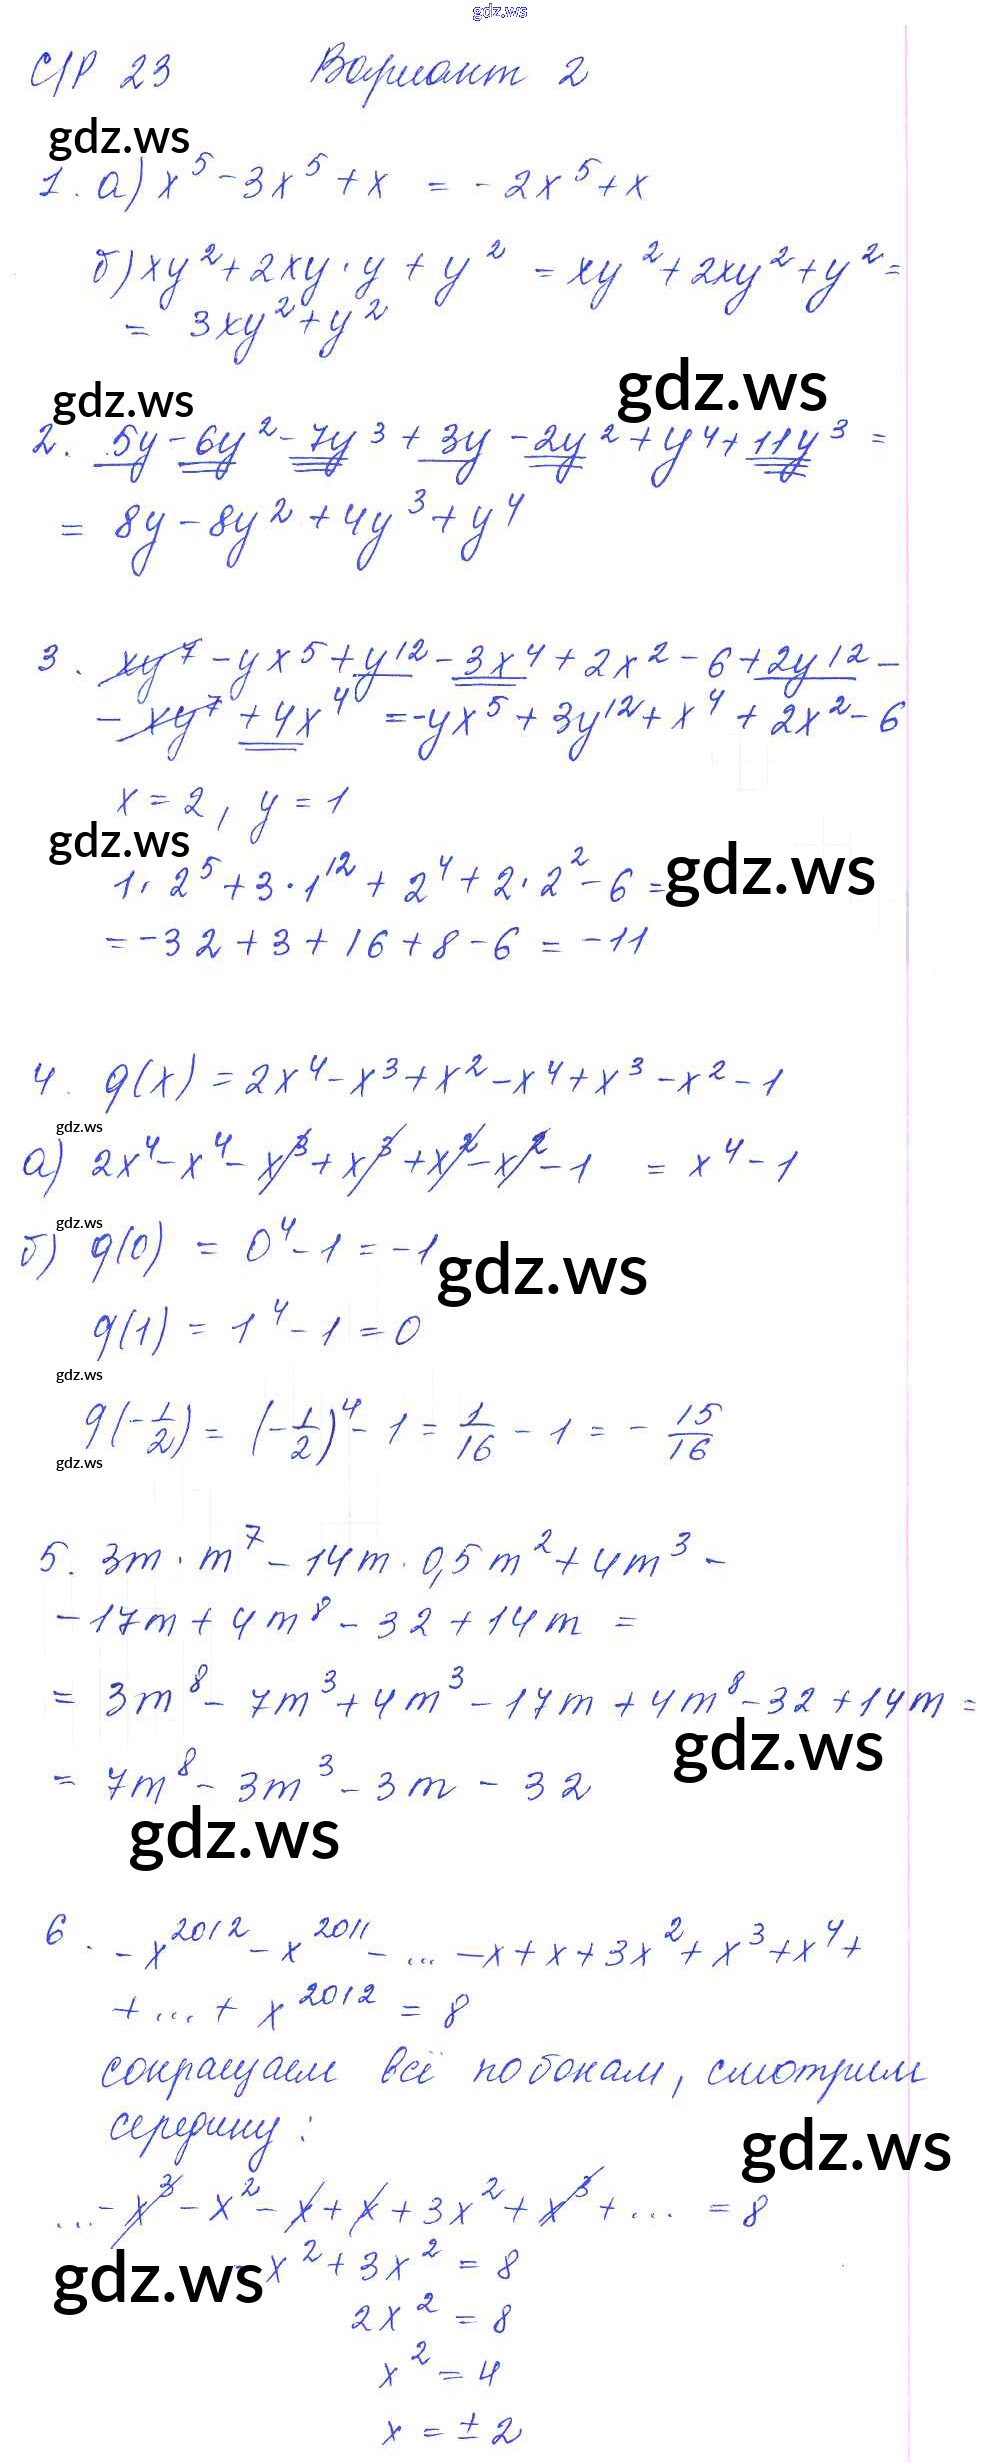 gdz.ws
С/Р 23 Вариант 2
gdz.ws
1. а) x⁵ - 3x⁵ + x = - 2x⁵ + x
б) xy² + 2xy · y + y² = xy² + 2xy² + y² =
= 3xy² + y²
gdz.ws gdz.ws
2. 5y - 6y² - 7y³ + 3y - 2y² + y⁴ + 11y³ =
= 8y - 8y² + 4y³ + y⁴
3. xy⁷ - yx⁵ + y¹² - 3x⁴ + 2x² - 6 + 2y¹² -
- xy⁷ + 4x⁴ = -yx⁵ + 3y¹² + x⁴ + 2x² - 6
x = 2, y = 1
gdz.ws gdz.ws
1 · 2⁵ + 3 · 1¹² + 2⁴ + 2 · 2² - 6 =
= -32 + 3 + 16 + 8 - 6 = -11
4. g(x) = 2x⁴ - x³ + x² - x⁴ + x³ - x² - 1
gdz.ws
а) 2x⁴ - x⁴ - x³ + x³ + x² - x² - 1 = x⁴ - 1
gdz.ws
б) g(0) = 0⁴ - 1 = -1
gdz.ws
g(1) = 1⁴ - 1 = 0
gdz.ws
g(-1/2) = (-1/2)⁴ - 1 = 1/16 - 1 = - 15/16
gdz.ws
5. 3m · m⁷ - 14m · 0,5m² + 4m³ -
- 17m + 4m⁸ - 32 + 14m =
= 3m⁸ - 7m³ + 4m³ - 17m + 4m⁸ - 32 + 14m =
gdz.ws
= 7m⁸ - 3m³ - 3m - 32
gdz.ws
6. - x²⁰¹² - x²⁰¹¹ - ... - x + x + 3x² + x³ + x⁴ +
+ ... + x²⁰¹² = 8
сокращаем всё по бокам, смотрим
середину:
gdz.ws
... - x³ - x² - x + x + 3x² + x³ + ... = 8
gdz.ws
x² + 3x² = 8
2x² = 8
x² = 4
x = ± 2